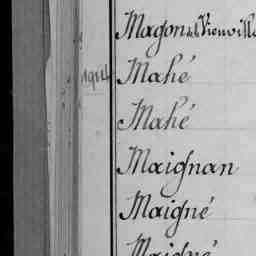 Magon de la Vieuville
1914 Mahé
Mahé
Maignan
Maigné
Maigné